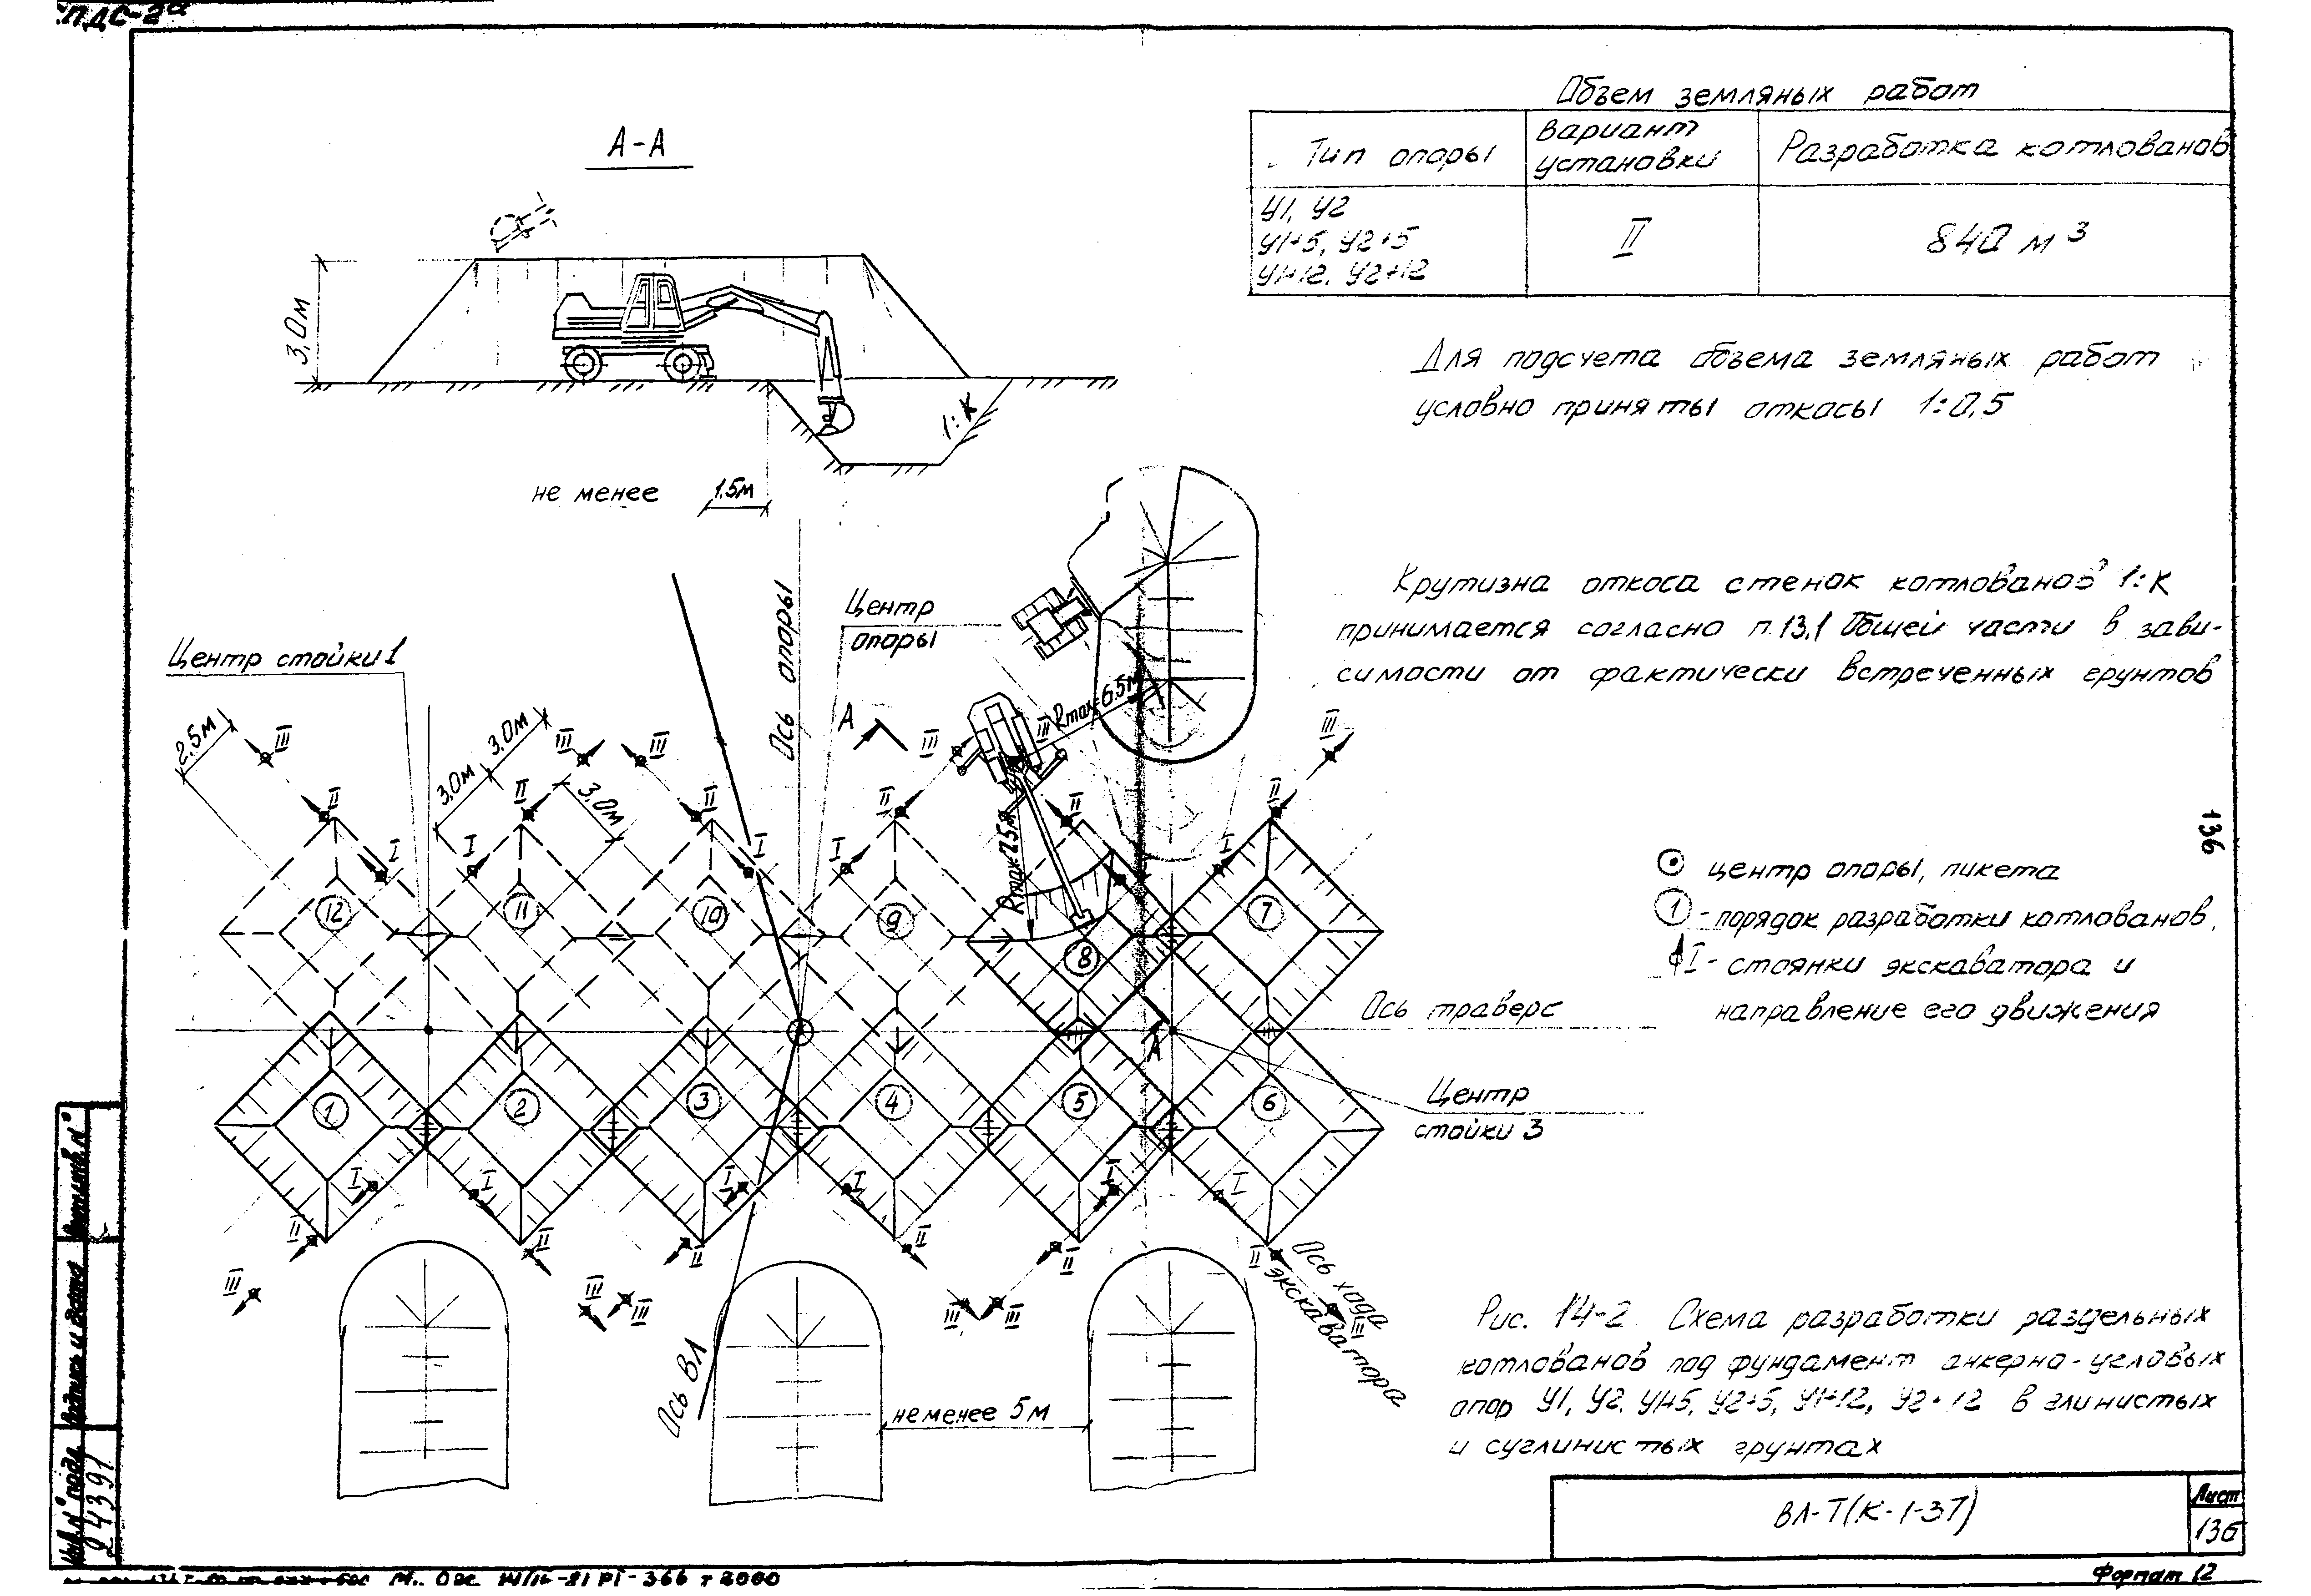 ПДС-2а
А-А
3,0м
1:К
не менее 1,5м
Объем земляных работ
Тип опоры
вариант
установки
Разработка котлованов
У1, У2
У1+5, У2+5
У1+12, У2+12
II
840 м³
Для подсчета объема земляных работ
условно приняты откосы 1:0,5
Крутизна откоса стенок котлованов 1:К
принимается согласно п.13,1 Общей части в зави-
симости от фактически встреченных грунтов
136
центр опоры, пикета
1 - порядок разработки котлованов,
I - стоянки экскаватора и
направление его движения
Центр стойки 1
Ось опоры
Центр
опоры
А
Rmax=6.5м
Rmax=7.5м
2.5м
3.0м
3.0м
3.0м
III III III III III III
II II II II II II
I I I I I
12 11 10 9 8 7
Ось траверс
А
Центр
стойки 3
1 2 3 4 5 6
I I I I I I
II II II II II II
III III III III III III
Ось хода
экскаватора
Ось ВЛ
не менее 5м
Рис. 14-2. Схема разработки раздельных
котлованов под фундамент анкерно-угловых
опор У1, У2, У1+5, У2+5, У1+12, У2+12 в глинистых
и суглинистых грунтах
ВЛ-Т(К-1-37)
Лист
136
Формат 12
Инв.N° подл.
Подпись и дата
24391